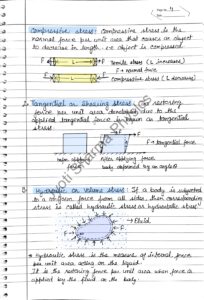 Page No. 4
Compressive stress : Compressive stress is the
normal force per unit area that causes an object
to decrease in length, i.e object is compressed
F L F Tensile stress (L increases)
F → normal force
F L F Compressive stress (L decrease)
2. Tangential or Shearing stress : The restoring
force per unit area developed due to the
applied tangential force is known as tangential
stress.
F → tangential force
before applied force
after applying force
body deformed by an angle θ
3. Hydraulic or Volume stress : If a body is subjected
to a uniform force from all sides then corresponding
stress is called hydraulic stress or hydrostatic stress
→ Fluid
→ Hydraulic stress is the measure of internal force
per unit area acting on the liquid.
It is the restoring force per unit area when force is
applied by the fluid on the body.
Jyoti Sharma Physics